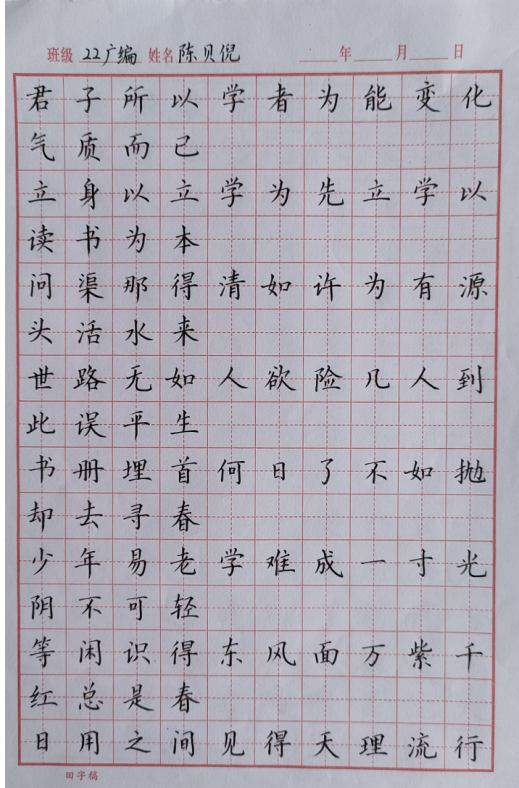 班级 22广编 姓名 陈贝倪 年 月 日
君子所以学者为能变化
气质而已
立身以立学为先立学以
读书为本
问渠那得清如许为有源
头活水来
世路无如人欲险几人到
此误平生
书册埋首何日了不如抛
却去寻春
少年易老学难成一寸光
阴不可轻
等闲识得东风面万紫千
红总是春
日用之间见得天理流行
田字稿